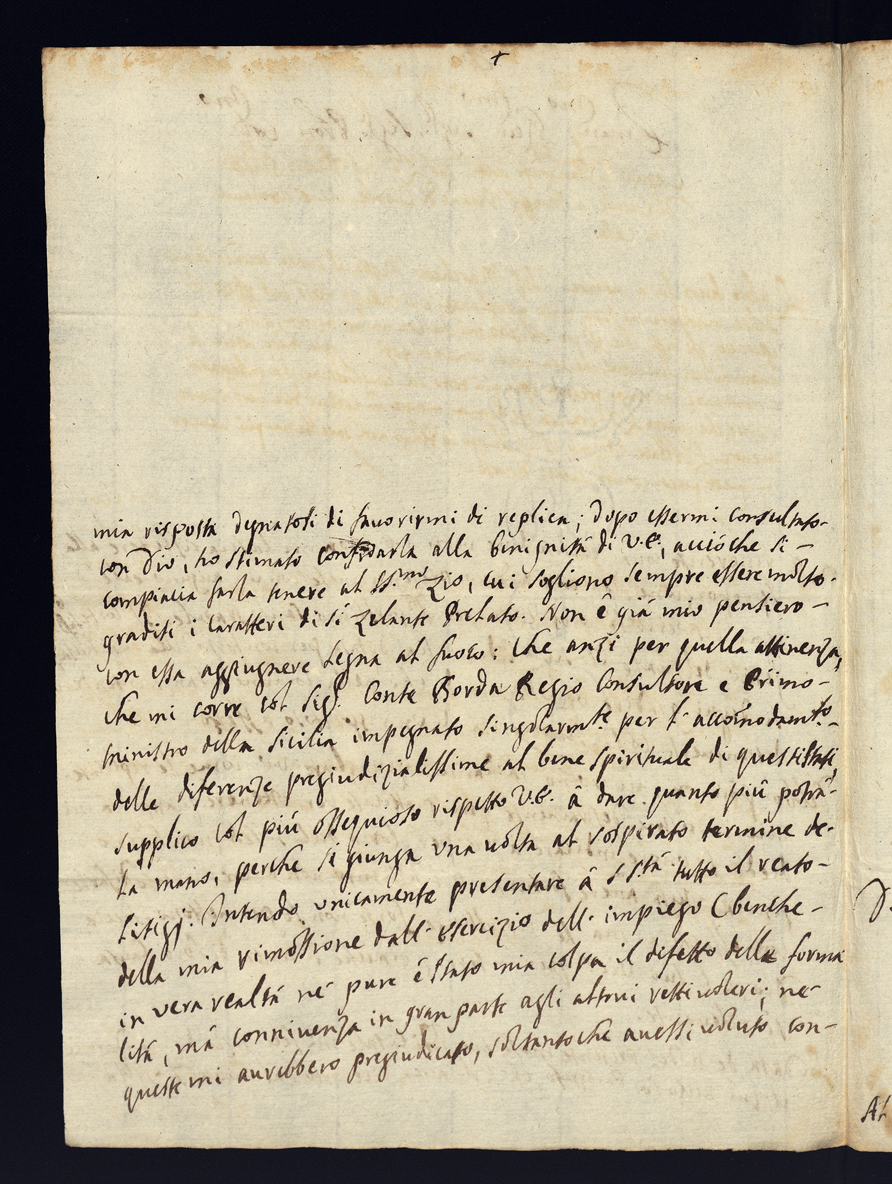 +
mia risposta degnatosi di favorirmi di replica; dopo essermi consultato
con Dio, ho stimato confidarla alla benignità di V.E., acciòche si
compiacia farla tenere al SS.mo Zio, cui sogliono sempre essere molto
graditi i caratteri di sì zelante Prelato. Non è già mio pensiero
con essa aggiugnere legna al fuoco: che anzi per quella attinenza,
che mi corre col Sig.r Conte Borda Regio Consultore e Primo
Ministro della Sicilia impegnato singolarm.te per l'accomodam.to
delle diferenze pregiudizialissime al bene spirituale di questi Stati
supplico col più ossequioso rispetto V.E. à dare quanto più potrà
la mano, perche si giunga una volta al sospirato termine de'
litigj. Intendo unicamente presentare à S S.tà tutto il reato
della mia rimossione dall'esercizio dell'impiego (benche
in vera realtà ne' pure è stato mia colpa il difetto della forma
lità, mà connivenza in gran parte agli altrui
ne'
queste mi avrebbero pregiudicato, soltantoche avessi voluto con-
D.
Al